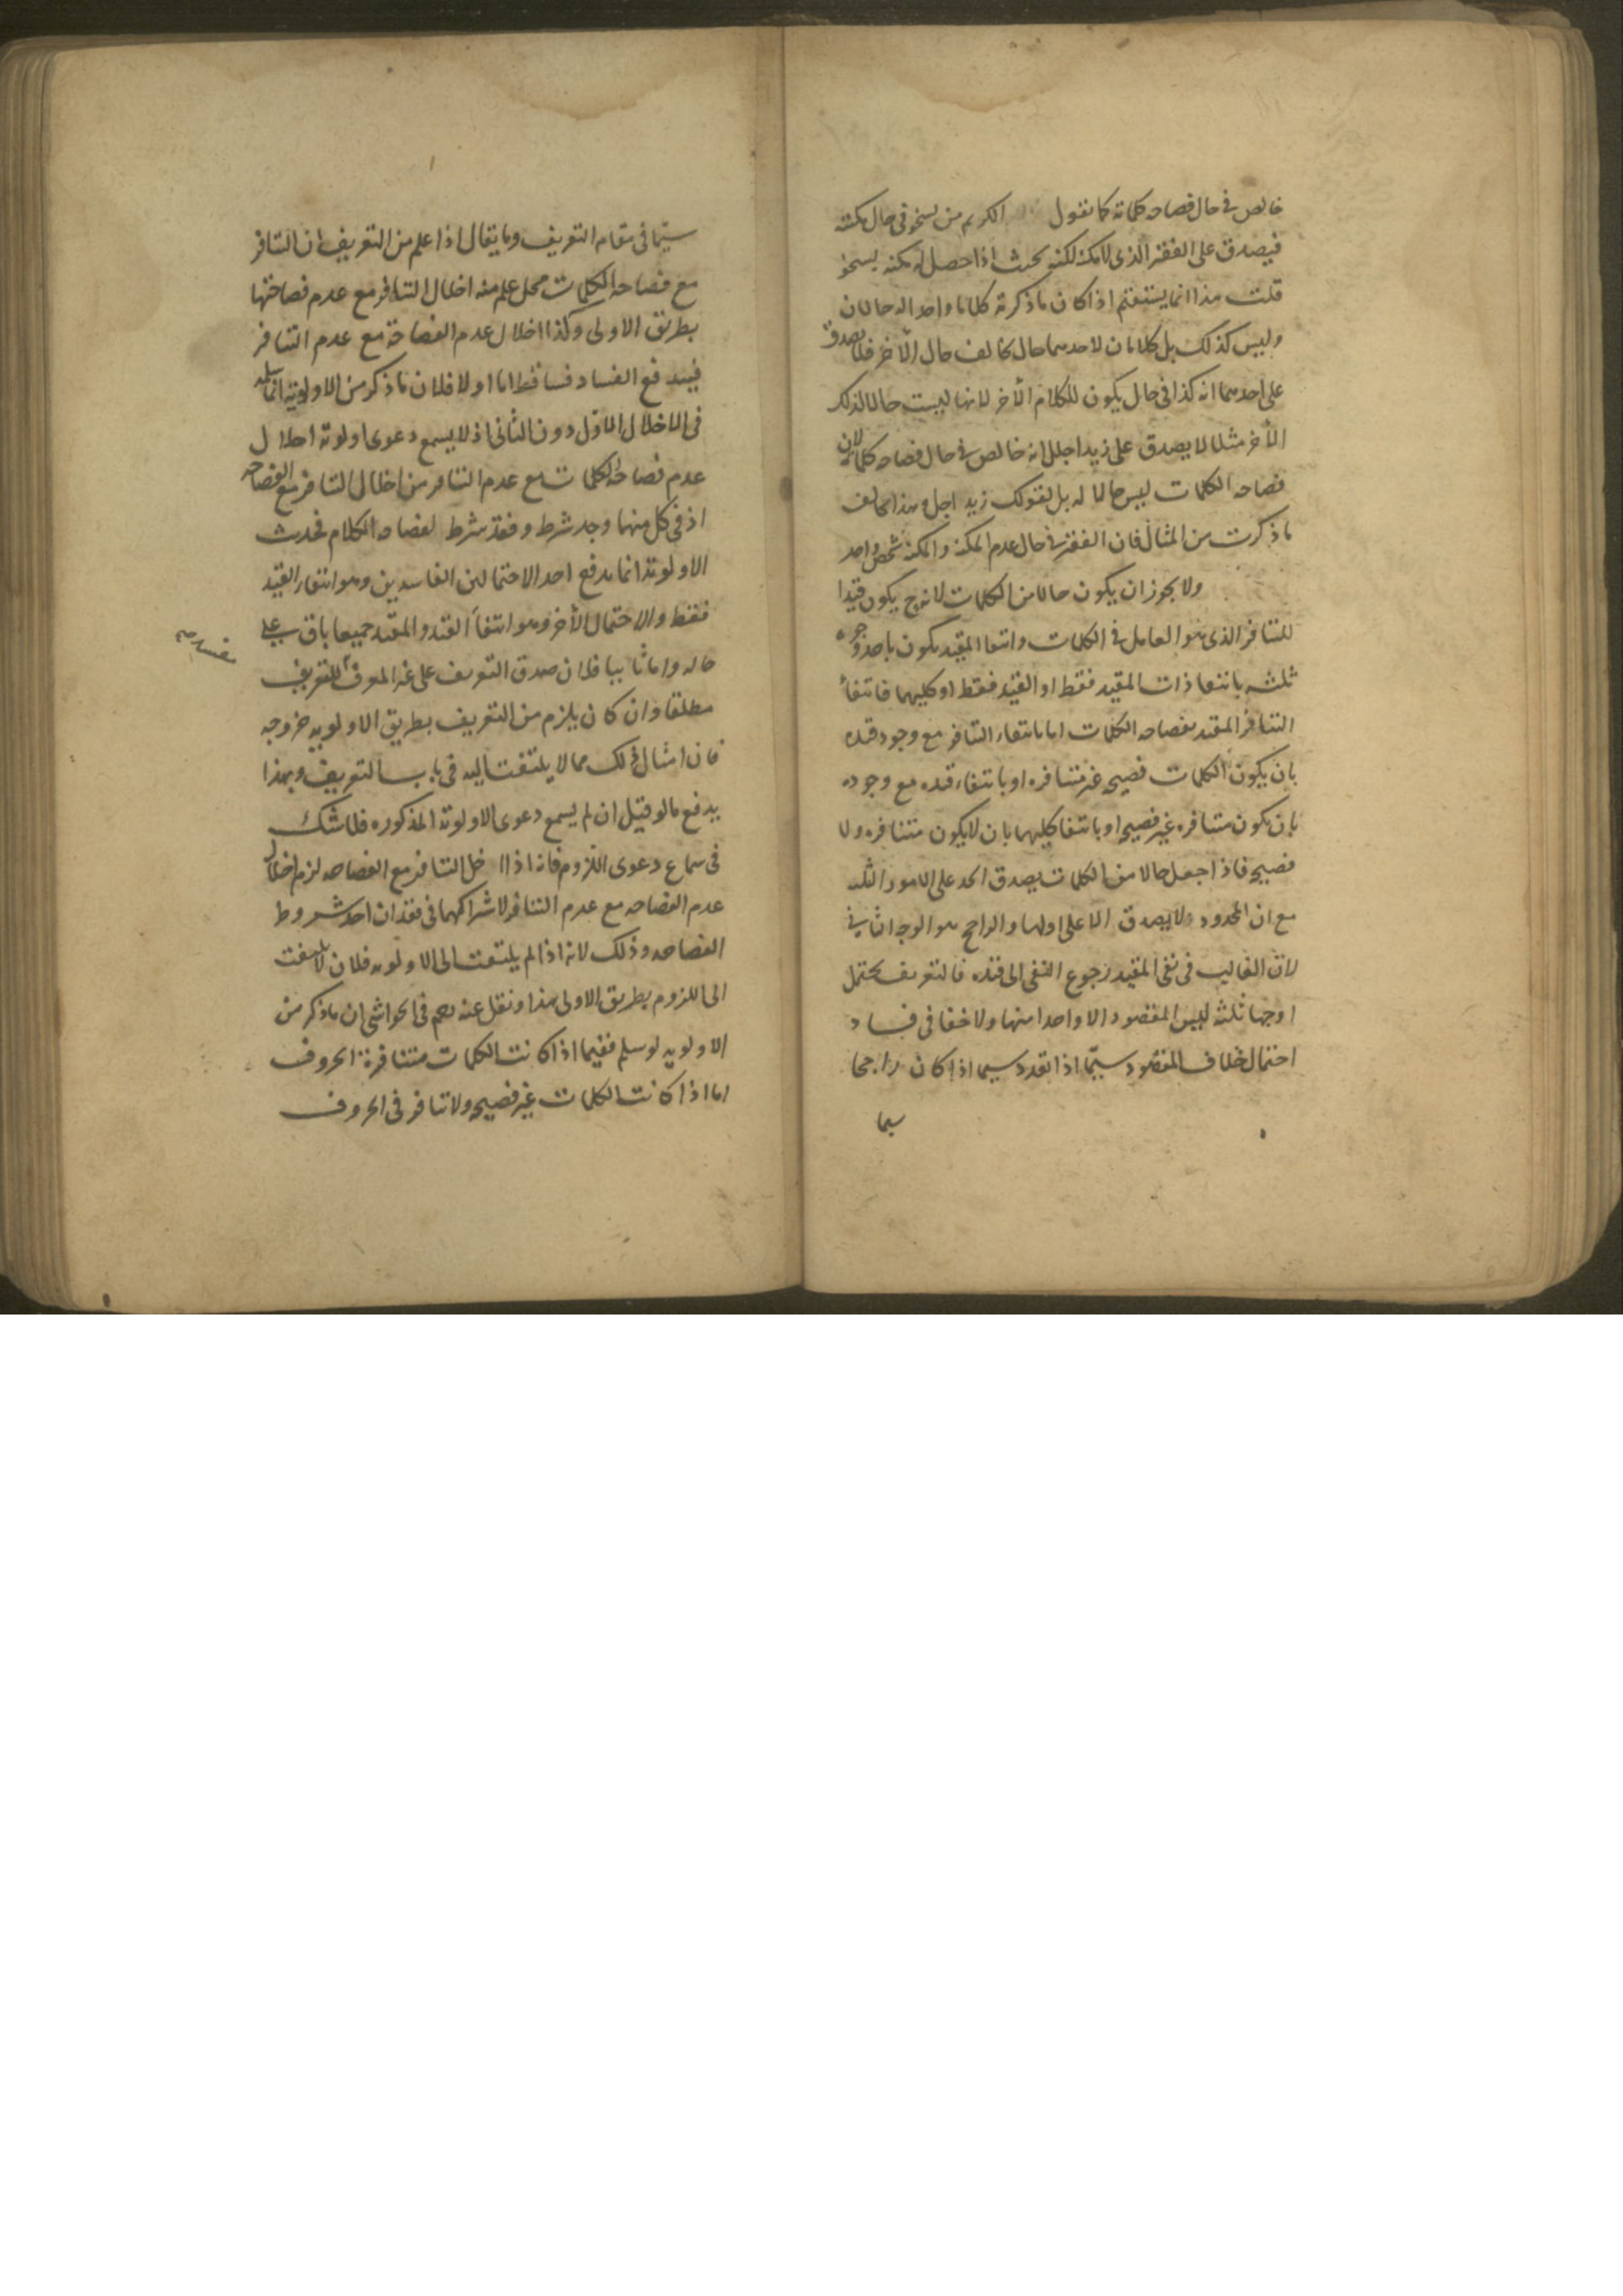 خالص في حال فصاحه كلماته كما نقول الكريم من يسخو في حال مكنته
فيصدق على الفقير الذى لا مكنة لكنه بحيث اذا حصل له مكنه يسخو
قلت هذا انما يستقيم اذا كان ما ذكرته كلاما واحدا له حالان
وليس كذلك بل كلامان لاحدهما حال يخالف حال الآخر فلا يصدق
على احدهما انه كذا فى حال يكون للكلام الآخر لانها ليست حالا لذلك
الآخر مثلا لا يصدق على زيد اجلل انه خالص في حال فصاحه كلماته لان
فصاحه الكلمات ليس حالا له بل لقولك زيد اجل وهذا يخالف
ما ذكرت من المثال فان الفقير في حال عدم المكنة والمكنة شخص واحد
ولا يجوز ان يكون حالا من الكلمات لانه ح يكون قيدا
للتنافر الذى هو العامل في الكلمات وانتفا المقيد يكون باحد وجوه
ثلثه بانتفا ذات المقيد فقط او القيد فقط او كليهما فانتفأ
التنافر المقيد بفصاحه الكلمات اما بانتفاء التنافر مع وجود قيده
بان يكون الكلمات فصيحه غير متنافره او بانتفاء قيده مع وجوده
بان يكون متنافره غير فصيحه او بانتفا كليهما بان لا يكون متنافره ولا
فصيحه فاذا جعل حالا من الكلمات يصدق الحد على الامور الثلثه
مع ان المحدود لا يصدق الا على اولها والراجح هو الوجه الثاني
لان الغالب فى نفى المقيد رجوع النفى الى قيده فالتعريف يحتمل
اوجها ثلثه ليس المقصود الا واحدا منها ولا خفا فى فساد
احتمال خلاف المقصود سيما اذا تعدد سيما اذا كان راجحا
سيما
سيما فى مقام التعريف وما يقال اذا علم من التعريف ان التنافر
مع فصاحه الكلمات مخل علم منه اخلال التنافر مع عدم فصاحتها
بطريق الاولى وكذا اخلال عدم الفصاحة مع عدم التنافر
فيندفع الفساد فساقط اما اولا فلان ما ذكر من الاولوية انما
فى الاخلال الاول دون الثانى اذ لا يسمع دعوى اولوية اخلال
عدم فصاحه الكلمات مع عدم التنافر من اخلال التنافر مع الفصاحه
اذ فى كل منهما وجد شرط وفقد شرط لفصاحه الكلام فحديث
الاولوية انما يدفع احد الاحتمالين الفاسدين وهو انتفاء القيد
فقط والاحتمال الآخر وهو انتفاء القيد والمقيد جميعا باق على
حاله واما ثانيا فلان صدق التعريف على غير المعرف للتعريف
مطلقا وان كان يلزم من التعريف بطريق الاولويه خروجه
فان امثال ذلك مما لا يلتفت اليه فى باب التعريف وبهذا
يدفع ما لو قيل ان لم يسمع دعوى الاولوية المذكوره فلا شك
فى سماع دعوى اللزوم فانه اذا اخل التنافر مع الفصاحه لزم اخلال
عدم الفصاحه مع عدم التنافر لاشتراكهما فى فقدان احد شروط
الفصاحه وذلك لانه اذا لم يلتفت الى الاولويه فلان لا يلتفت
الى اللزوم بطريق الاولى هذا ونقل عنه رحم فى الحواشى ان ما ذكر من
الاولويه لو سلم ففيما اذا كانت الكلمات متنافرة الحروف
اما اذا كانت الكلمات غير فصيحه ولا تنافر فى الحروف